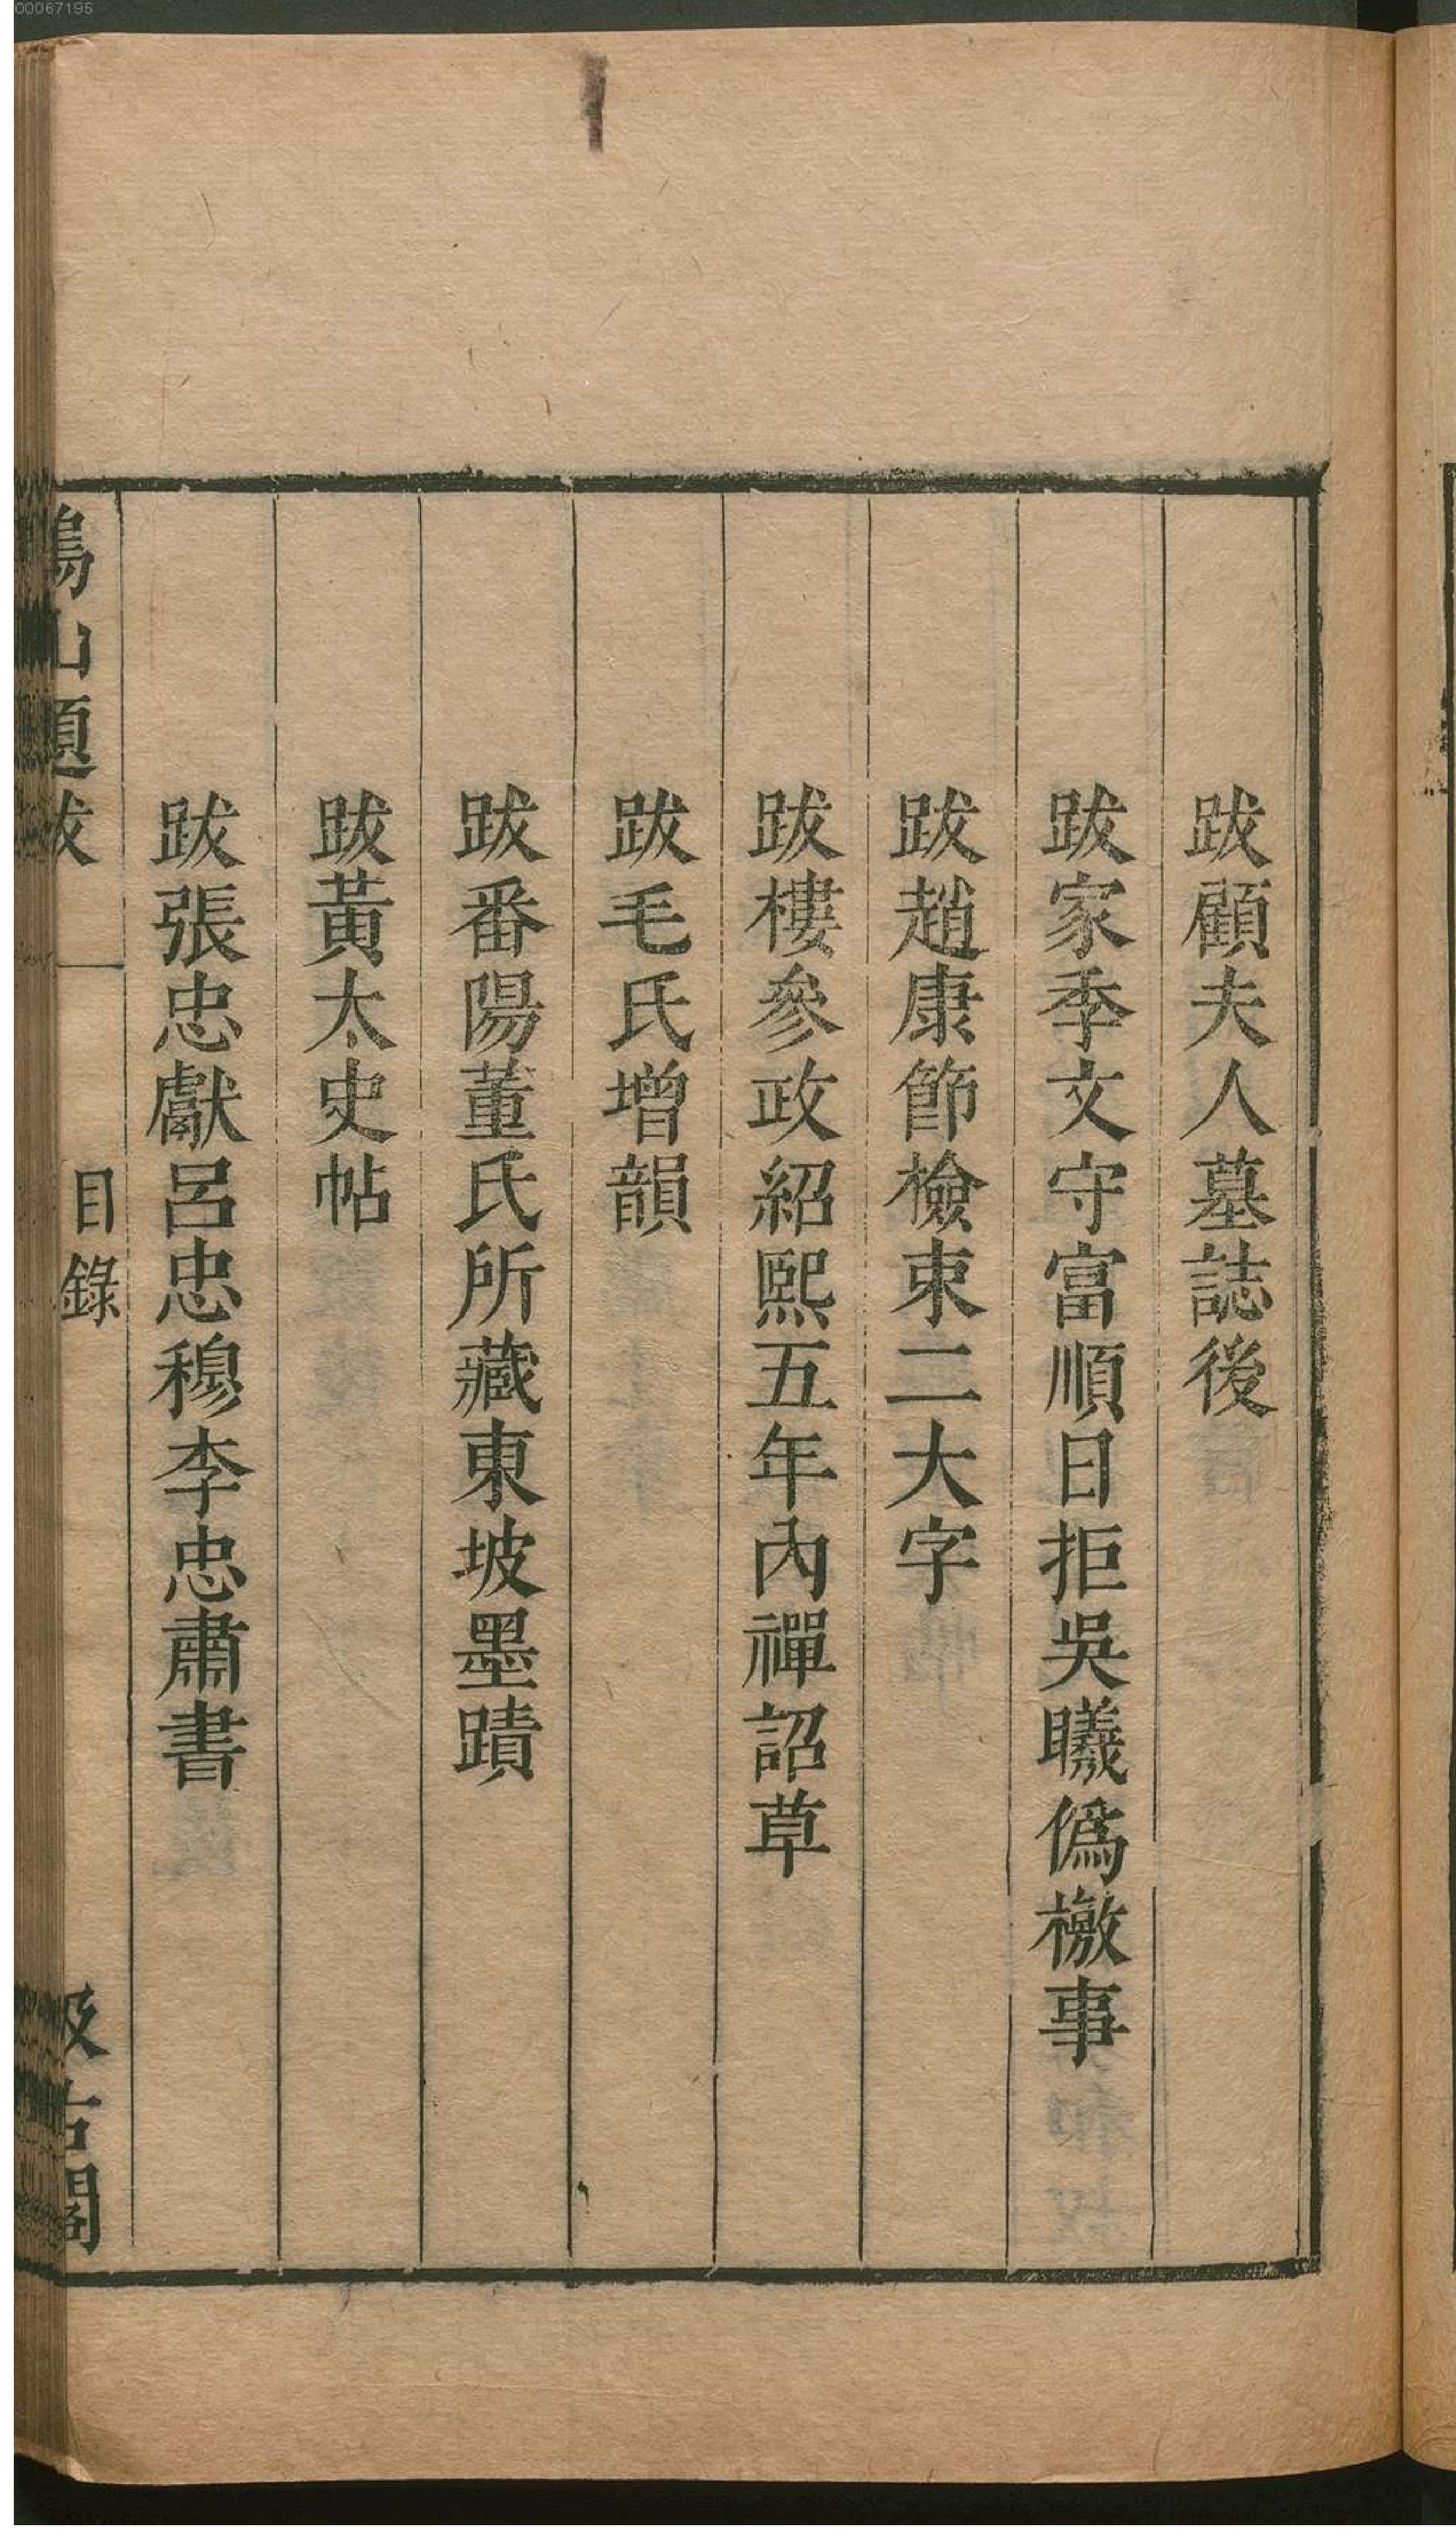 00067195
跋顧夫人墓誌後
跋家季文守富順日拒吳曦僞檄事
跋趙康節檢束二大字
跋樓參政紹熙五年內禪詔草
跋毛氏增韻
跋番陽董氏所藏東坡墨蹟
跋黃太史帖
跋張忠獻呂忠穆李忠肅書
鶴山題跋 目錄 汲古閣